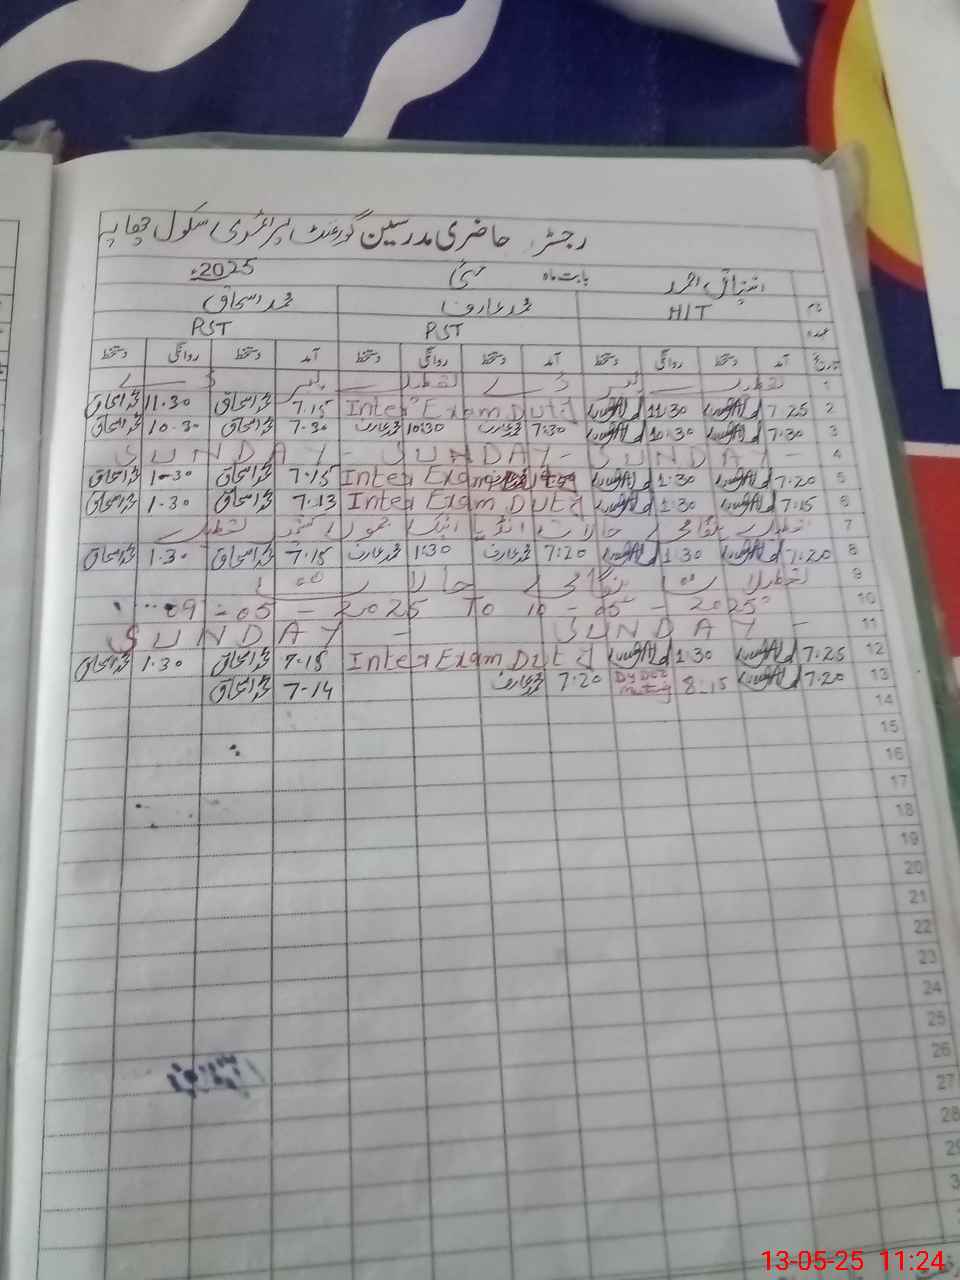 رجسٹر حاضری مدرسین گورنمنٹ پرائمری سکول چھاپہ
اشتیاق احمد بابت ماہ مئی 2025ء
نام محمد عارف محمد اسحاق
عہدہ HIT PST PST
تاریخ آمد دستخط روانگی دستخط آمد دستخط روانگی دستخط آمد دستخط روانگی دستخط
1 تعطیل لیبر ڈے تعطیل لیبر ڈے
2 7.25 11:30 Inter Exam Duty 7.15 محمد اسحاق 11.30 محمد اسحاق
3 7:30 10:30 7:30 محمد عارف 10:30 محمد عارف 7.30 محمد اسحاق 10.30 محمد اسحاق
4 SUNDAY - SUNDAY - SUNDAY -
5 7:20 1:30 Inter Exam 7.15 محمد اسحاق 1-30 محمد اسحاق
6 7:15 1:30 Inter Exam Duty 7.13 محمد اسحاق 1.30 محمد اسحاق
7 تعطیل ہنگامی حالات انڈیا اٹیک کشمیر تعطیل
8 7:20 1:30 7:20 محمد عارف 1:30 محمد عارف 7.15 محمد اسحاق 1.30 محمد اسحاق
9 تعطیلات ہنگامی حالات
10 09-05-2025 TO 10-05-2025
11 SUNDAY - SUNDAY -
12 7:25 1:30 Inter Exam Duty 7.15 محمد اسحاق 1.30 محمد اسحاق
13 7:20 8:15 7:20 محمد عارف 7.14 محمد اسحاق
14
15
16
17
18
19
20
21
22
23
24
25
26
27
28
13-05-25 11:24